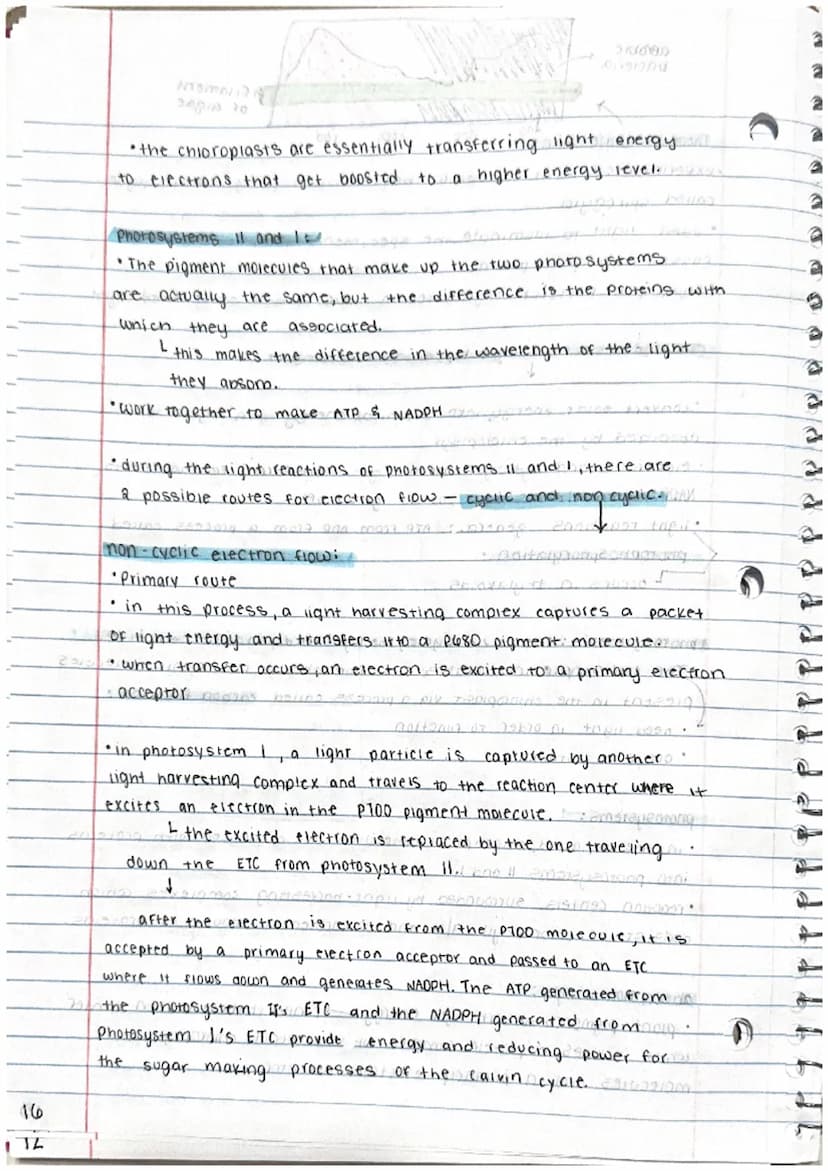 •the chloroplasts are essentially transferring light energy
to electrons that get boosted to a higher energy level.
Photosystems II and I:
•The pigment molecules that make up the two photosystems
are actually the same, but the difference is the proteins with
which they are associated.
↳ this makes the difference in the wavelength of the light
they absorb.
•work together to make ATP & NADPH
•during the light reactions of photosystems II and I, there are
2 possible routes for electron flow – cyclic and non cyclic.
non-cyclic electron flow:
•Primary route
• in this process, a light harvesting complex captures a packet
of light energy and transfers it to a P680 pigment molecule.
• when transfer occurs, an electron is excited to a primary electron
acceptor
•in photosystem I, a light particle is captured by another
light harvesting complex and travels to the reaction center where it
excites an electron in the P700 pigment molecule.
↳ the excited electron is replaced by the one traveling
down the ETC from photosystem II.
↓
after the electron is excited from the P700 molecule, it is
accepted by a primary electron acceptor and passed to an ETC
where it flows down and generates NADPH. The ATP generated from
the photosystem II's ETC and the NADPH generated from
Photosystem I's ETC provide energy and reducing power for
the sugar making processes of the calvin cycle.
16